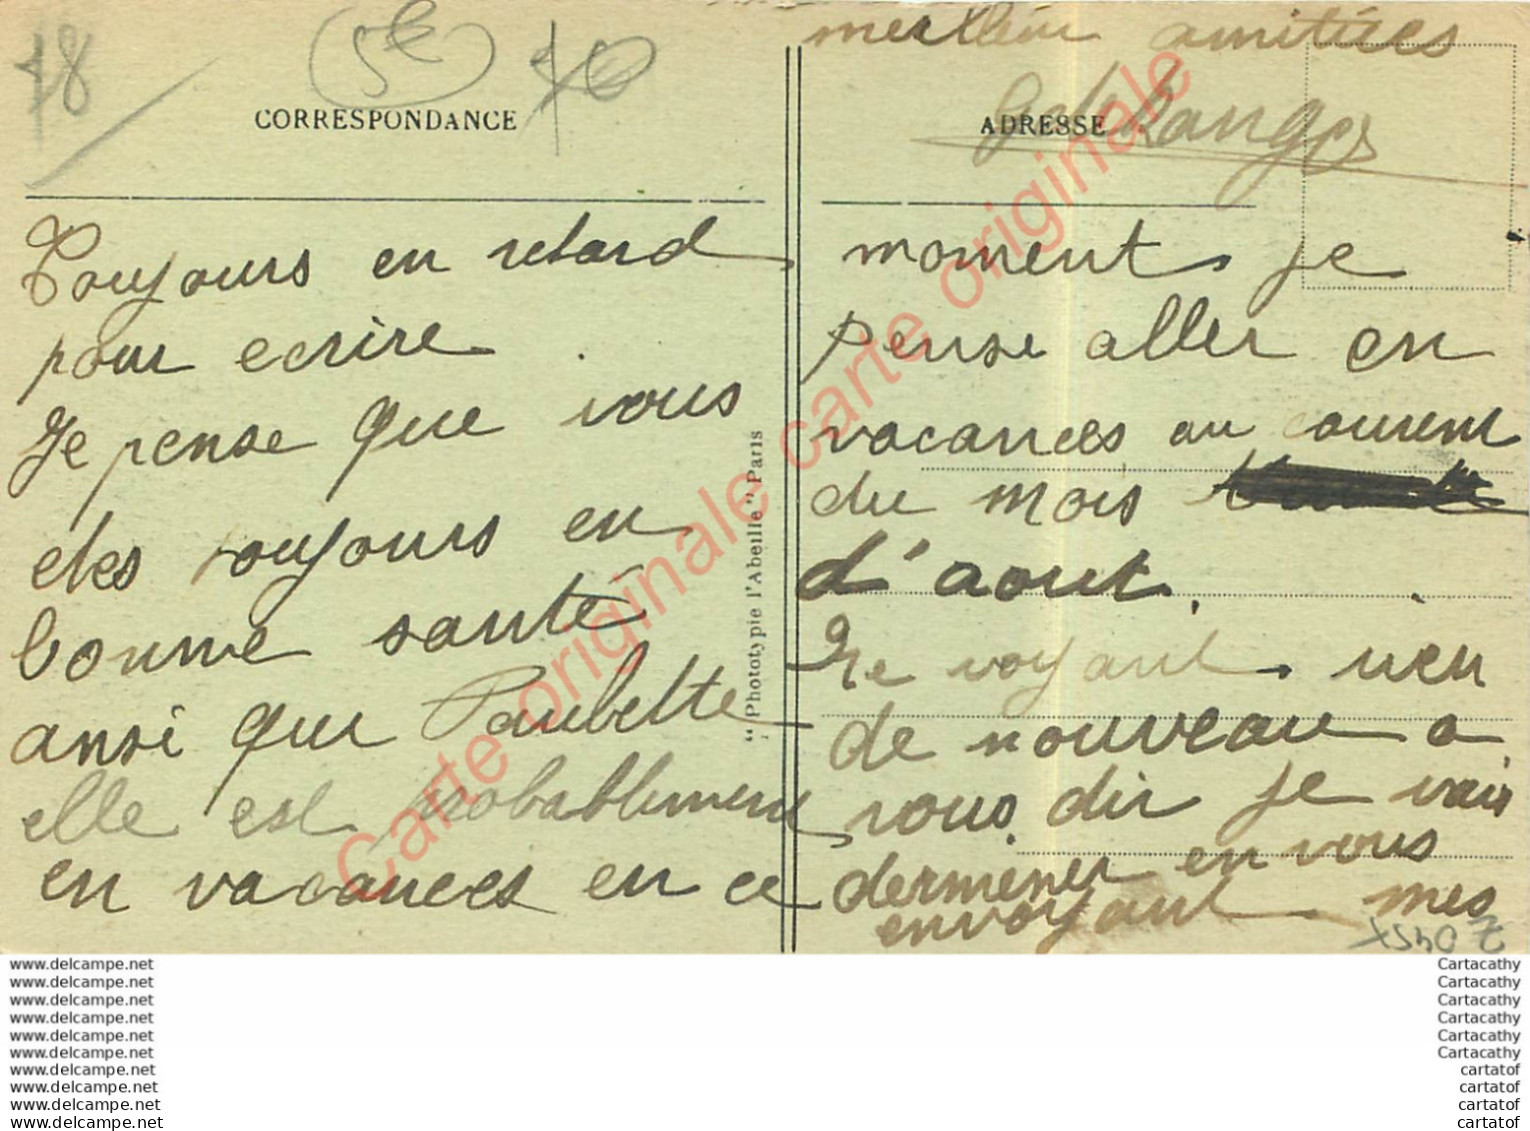 78
5€
CORRESPONDANCE
Toujours en retard
pour ecrire
Je pense que vous
etes toujours en
bonne santé
ansi que Paulette
elle est probablement
en vacances en ce
"Phototypie l'Abeille" Paris
ADRESSE
moment, je
pense aller en
vacances au courent
du mois
d'aout.
Ne voyant rien
de nouveau a
vous dir je vais
dermener en vous
envoyant mes
meilleur amitiées
Carte originale carte originale
www.delcampe.net
www.delcampe.net
www.delcampe.net
www.delcampe.net
www.delcampe.net
www.delcampe.net
www.delcampe.net
www.delcampe.net
www.delcampe.net
www.delcampe.net
Cartacathy
Cartacathy
Cartacathy
Cartacathy
Cartacathy
Cartacathy
cartatof
cartatof
cartatof
cartatof